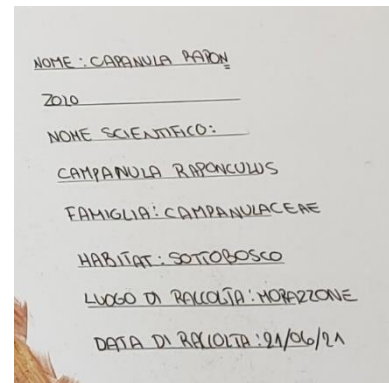 NOME: CAPANULA RAPON
ZOLO
NOME SCIENTIFICO:
CAMPANULA RAPONCULUS
FAMIGLIA: CAMPANULACEAE
HABITAT: SOTTOBOSCO
LUOGO DI RACCOLTA: MORAZZONE
DATA DI RACCOLTA: 21/06/21